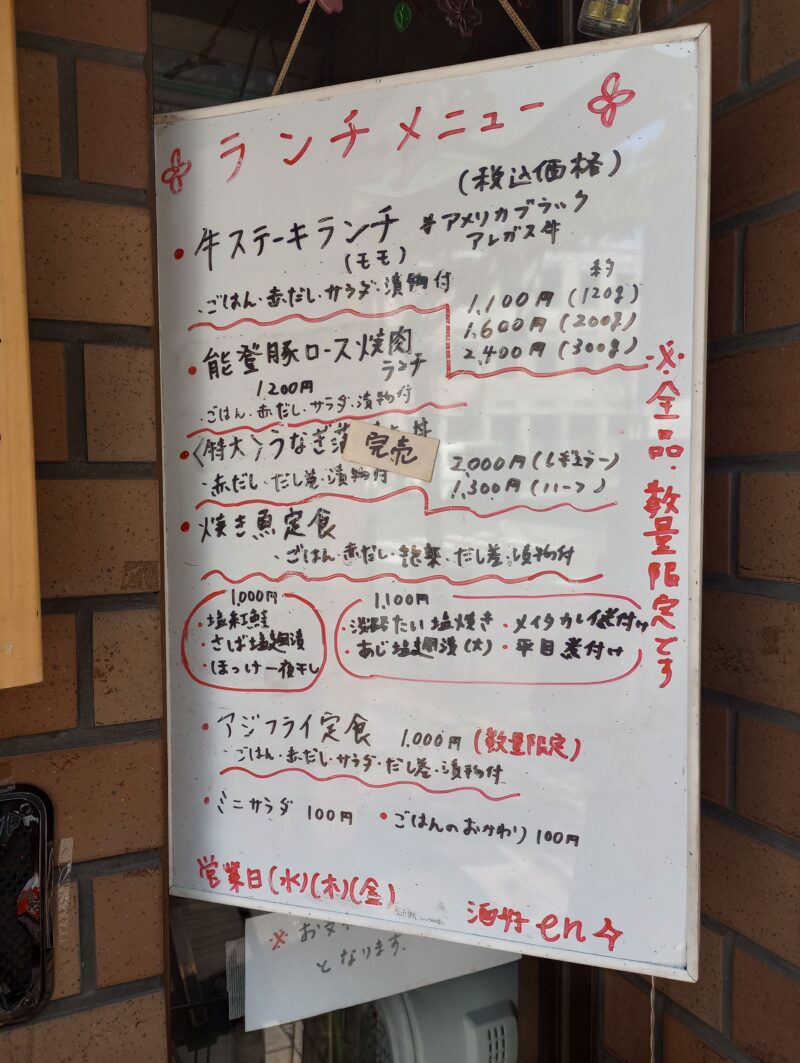 ランチメニュー
(税込価格)
・牛ステーキランチ #アメリカブラック
(モモ) アレガス牛
・ごはん・赤だし・サラダ・漬物付
約
1,100円(120g)
1,600円(200g)
2,400円(300g)
・能登豚ロース焼肉
ランチ
1200円
・ごはん・赤だし・サラダ・漬物付
・〈特大〉うなぎ 丼
完売
・赤だし・だし巻・漬物付
2,000円(レギュラー)
1,300円(ハーフ)
・焼き魚定食
・ごはん・赤だし・惣菜・だし巻・漬物付
1,000円
・塩紅鮭
・さば塩麹漬
・ほっけ一夜干し
1,100円
・淡路たい塩焼き・メイタカレイ煮付け
・あじ塩麹漬(大)・平目煮付け
・アジフライ定食 1,000円(数量限定)
・ごはん・赤だし・サラダ・だし巻・漬物付
・ミニサラダ 100円 ・ごはんのおかわり 100円
※全品・数量限定です
営業日(水)(木)(金)
酒好en
※お
となります.